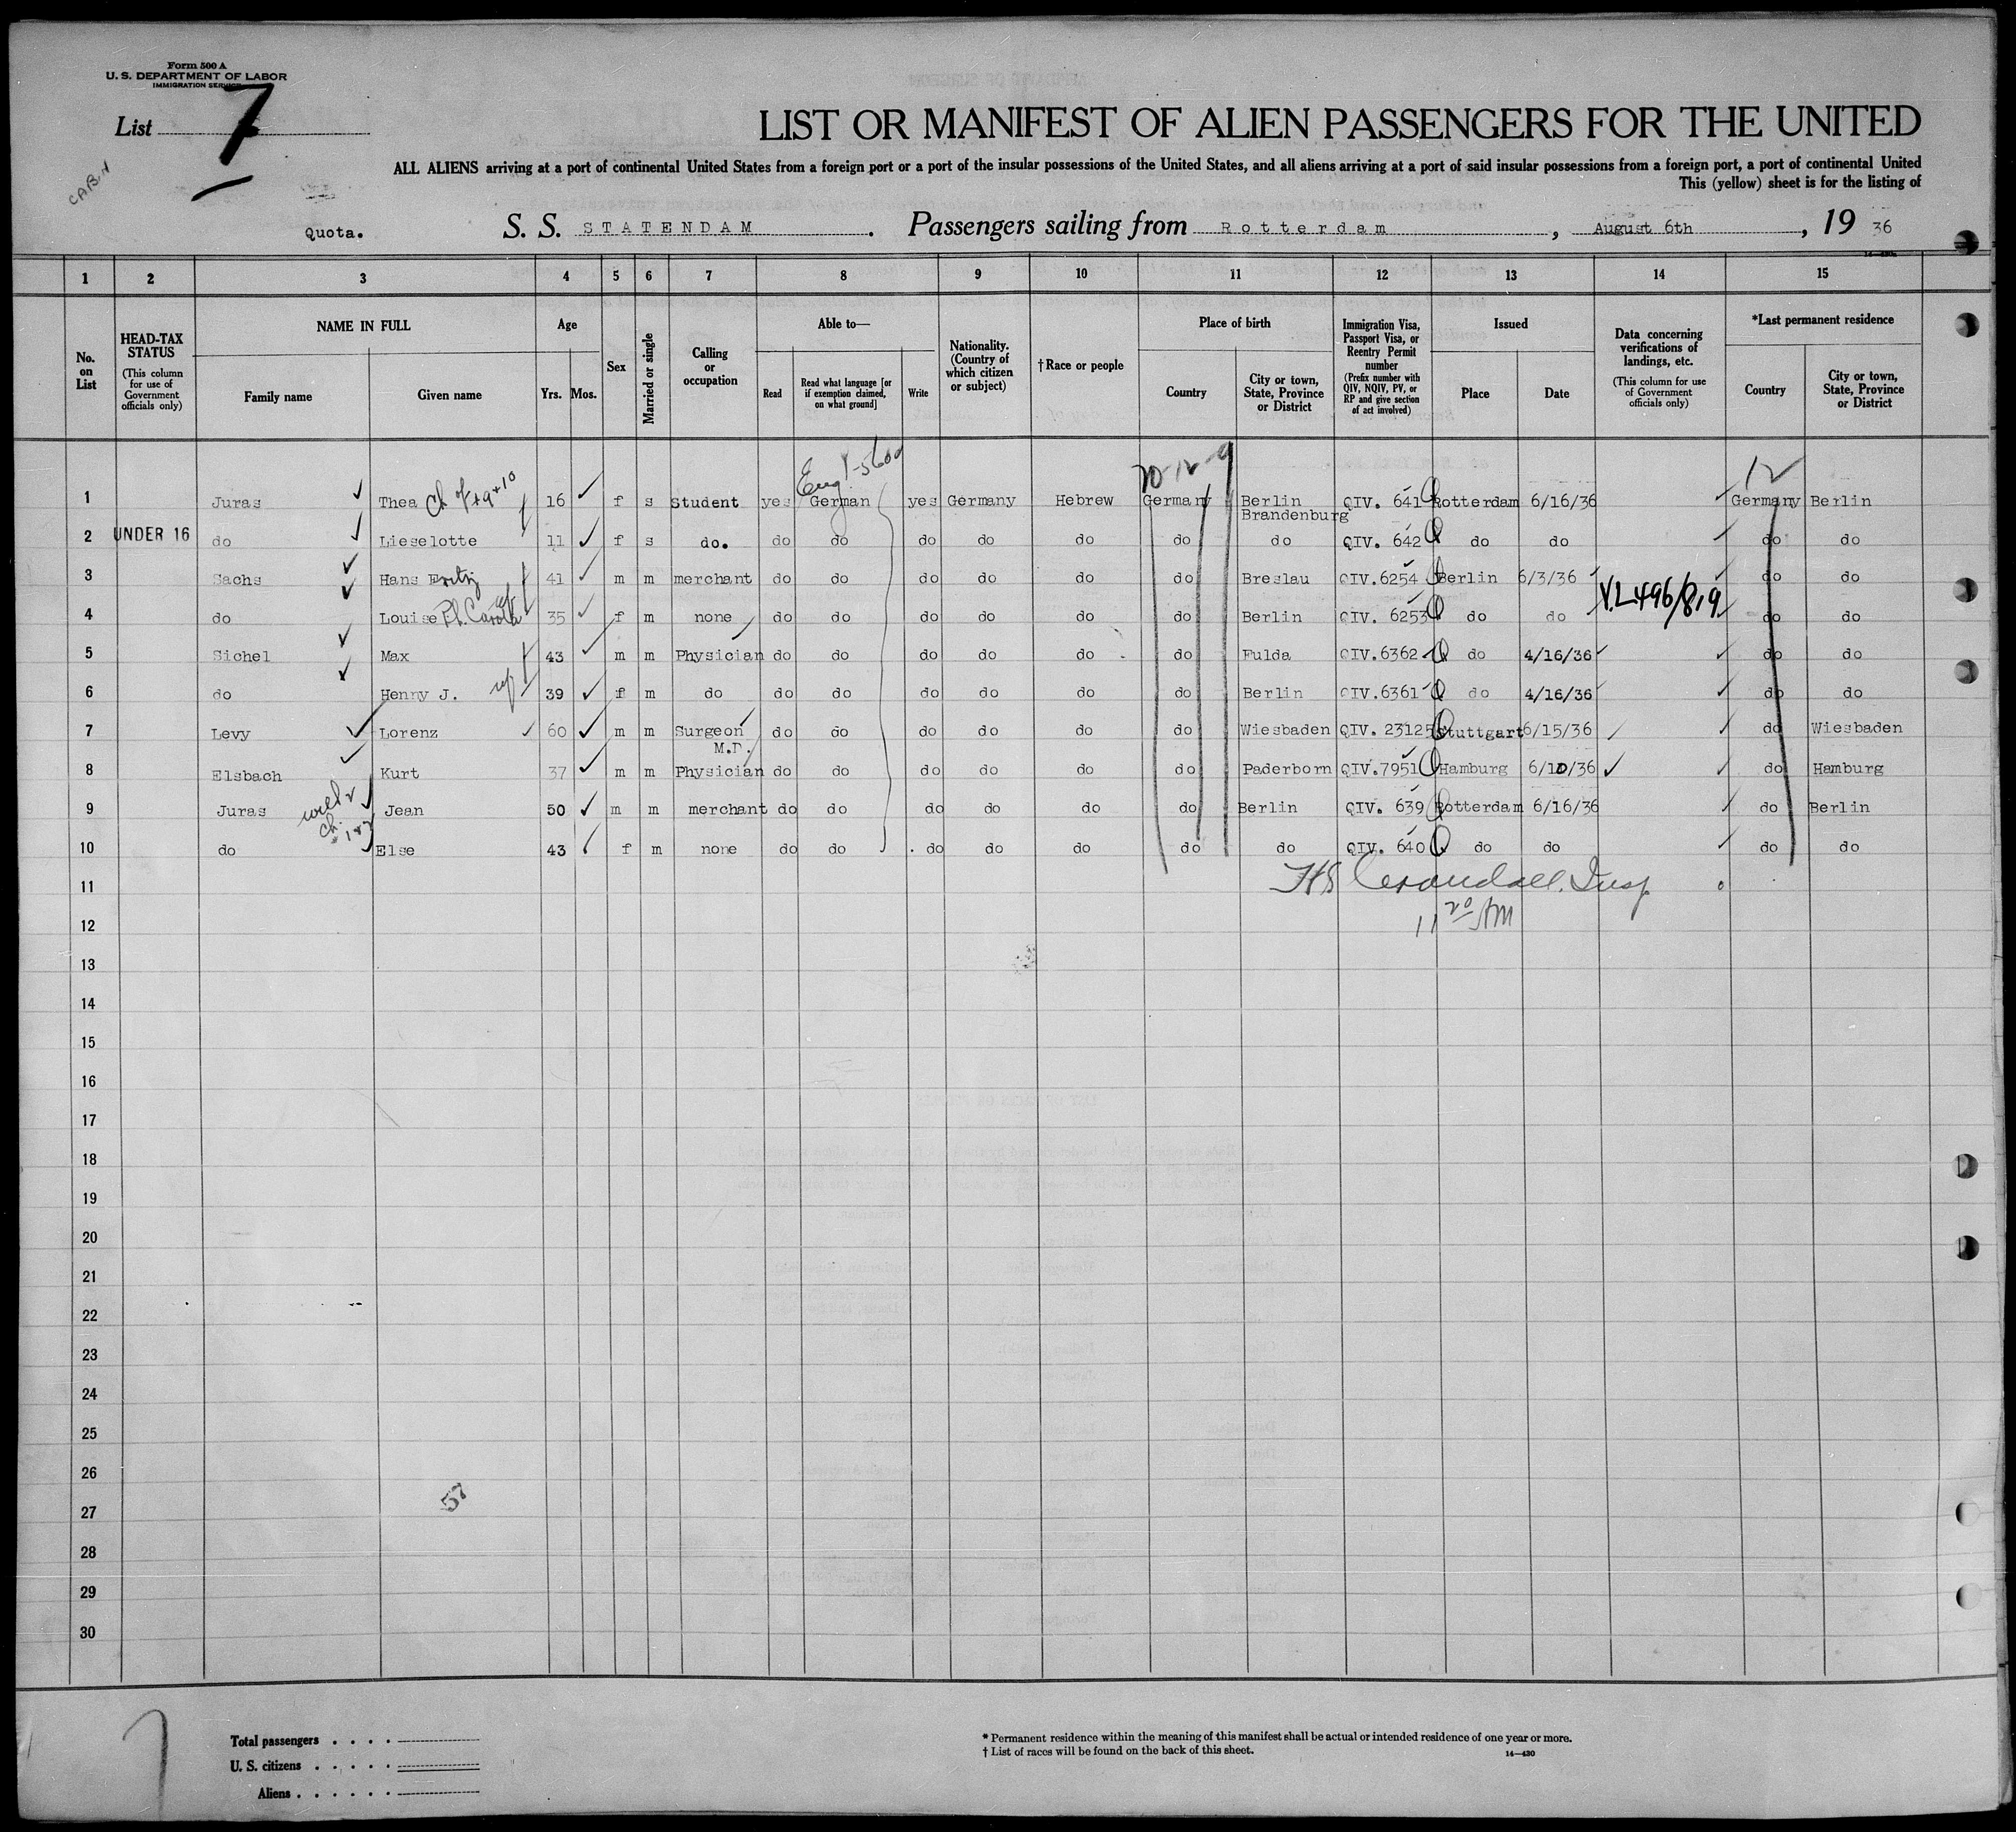 Form 500 A
U. S. DEPARTMENT OF LABOR
IMMIGRATION SERVICE
List 7
CABIN
LIST OR MANIFEST OF ALIEN PASSENGERS FOR THE UNITED
ALL ALIENS arriving at a port of continental United States from a foreign port or a port of the insular possessions of the United States, and all aliens arriving at a port of said insular possessions from a foreign port, a port of continental United
This (yellow) sheet is for the listing of
Quota. S. S. STATENDAM . Passengers sailing from Rotterdam , August 6th , 19 36
1 2 3 4 5 6 7 8 9 10 11 12 13 14 15
No. on List
HEAD-TAX STATUS (This column for use of Government officials only)
NAME IN FULL Family name Given name
Age Yrs. Mos.
Sex
Married or single
Calling or occupation
Able to— Read Read what language [or if exemption claimed, on what ground] Write
Nationality. (Country of which citizen or subject)
† Race or people
Place of birth Country City or town, State, Province or District
Immigration Visa, Passport Visa, or Reentry Permit number (Prefix number with QIV, NQIV, PV, or RP and give section of act involved)
Issued Place Date
Data concerning verifications of landings, etc. (This column for use of Government officials only)
*Last permanent residence Country City or town, State, Province or District
Eng 1-5600 70-12-9 12
1 Juras Thea Ch of 9+10 16 f s Student yes German yes Germany Hebrew Germany Berlin Brandenburg QIV. 641 Rotterdam 6/16/36 Germany Berlin
2 UNDER 16 do Lieselotte 11 f s do. do do do do do do do QIV. 642 do do do do
3 Sachs Hans Fritz 41 m m merchant do do do do do do Breslau QIV.6254 Berlin 6/3/36 do do
4 do Louise Ph. Carola 35 f m none do do do do do do Berlin QIV. 6253 do do V.L496/8,9 do do
5 Sichel Max 43 m m Physician do do do do do do Fulda QIV.6362 do 4/16/36 do do
6 do Henny J. wf 39 f m do do do do do do do Berlin QIV.6361 do 4/16/36 do do
7 Levy Lorenz 60 m m Surgeon M.D. do do do do do do Wiesbaden QIV. 23125 Stuttgart 6/15/36 do Wiesbaden
8 Elsbach Kurt 37 m m Physician do do do do do do Paderborn QIV.7951 Hamburg 6/10/36 do Hamburg
9 Juras Jean 50 m m merchant do do do do do do Berlin QIV. 639 Rotterdam 6/16/36 do Berlin
with 2 ch. 1+2
10 do Else 43 f m none do do do do do do do QIV. 640 do do do do
11 HS Crandall, Insp.
12 11 20 AM
13
14
15
16
17
18
19
20
21
22
23
24
25
26
27
57
28
29
30
Total passengers
U. S. citizens
Aliens
* Permanent residence within the meaning of this manifest shall be actual or intended residence of one year or more.
† List of races will be found on the back of this sheet.
14—430